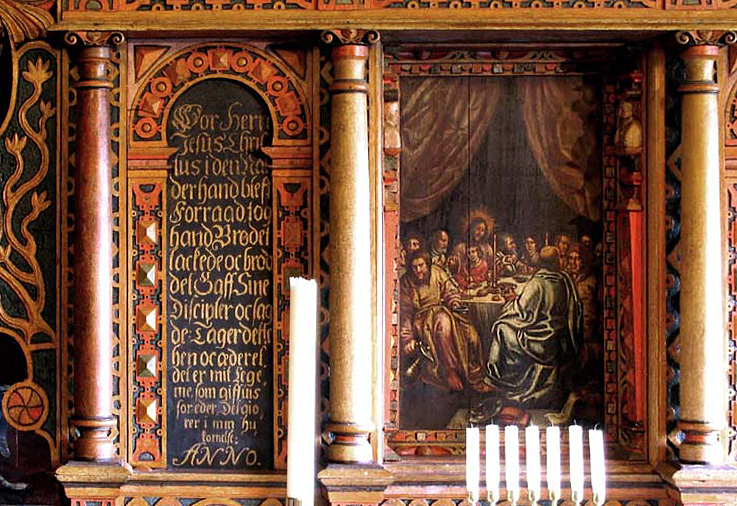 Vor Herr
Jesus Chri
tus i den Nat
der hand blef
Forraad tog
hand Brødet
tackede oc brød
det Gaff Sine
Discipler oc sag
de Tager dette
hen oc æder et
det er mit Lege
me som giffuis
for eder Det giø
rer i min hu
kommelse
ANNO